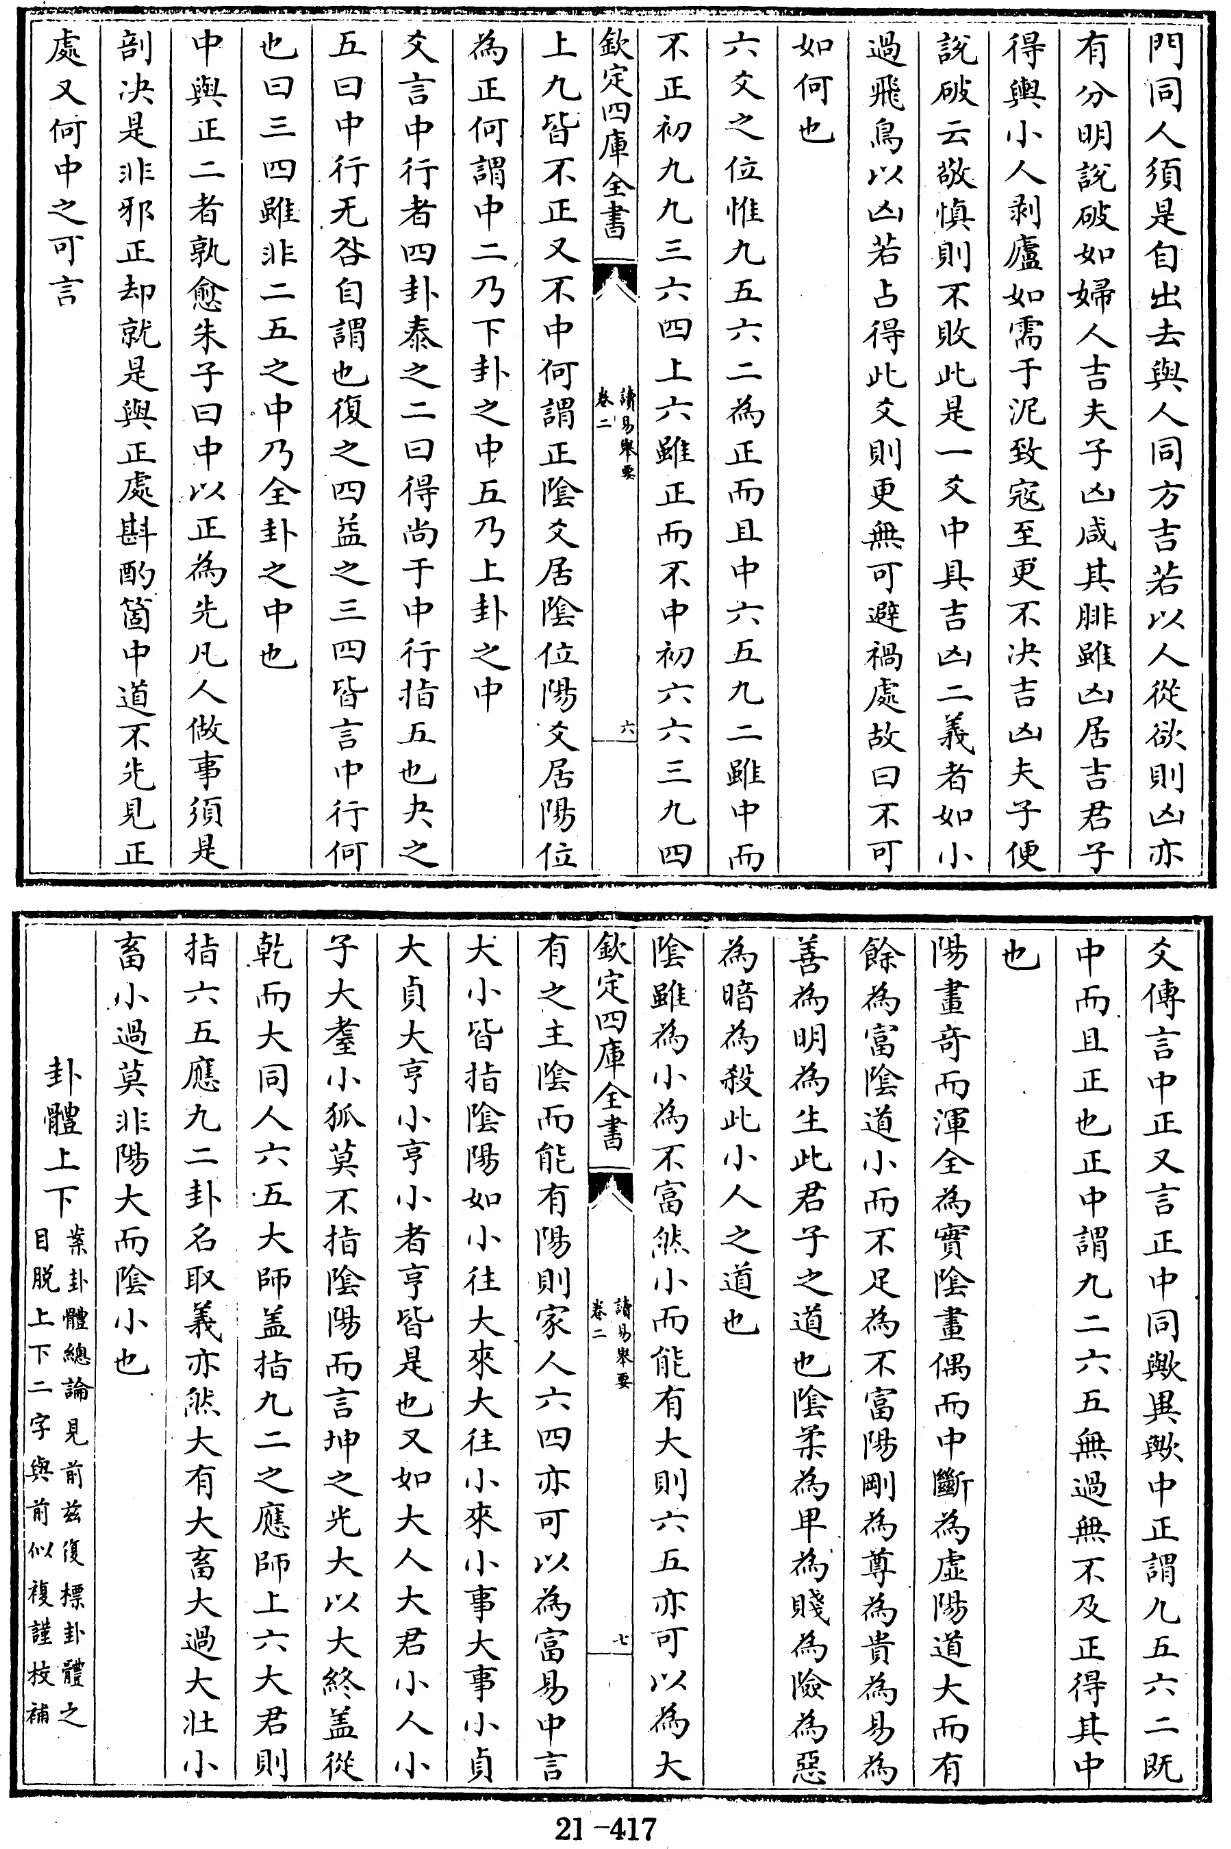 門同人須是自出去與人同方吉若以人從欲則凶亦
有分明說破如婦人吉夫子凶咸其腓雖凶居吉君子
得輿小人剥廬如需于泥致寇至更不决吉凶夫子便
說破云敬慎則不敗此是一爻中具吉凶二義者如小
過飛鳥以凶若占得此爻則更無可避禍處故曰不可
如何也
六爻之位惟九五六二為正而且中六五九二雖中而
不正初九九三六四上六雖正而不中初六六三九四
欽定四庫全書
讀易舉要
卷二
六
上九皆不正又不中何謂正陰爻居陰位陽爻居陽位
為正何謂中二乃下卦之中五乃上卦之中
爻言中行者四卦泰之二曰得尚于中行指五也夬之
五曰中行无咎自謂也復之四益之三四皆言中行何
也曰三四雖非二五之中乃全卦之中也
中與正二者孰愈朱子曰中以正為先凡人做事須是
剖决是非邪正却就是與正處斟酌箇中道不先見正
處又何中之可言
爻傳言中正又言正中同歟異歟中正謂九五六二既
中而且正也正中謂九二六五無過無不及正得其中
也
陽畫奇而渾全為實陰畫偶而中斷為虛陽道大而有
餘為富陰道小而不足為不富陽剛為尊為貴為易為
善為明為生此君子之道也陰柔為卑為賤為險為惡
為暗為殺此小人之道也
陰雖為小為不富然小而能有大則六五亦可以為大
欽定四庫全書
讀易舉要
卷二
七
有之主陰而能有陽則家人六四亦可以為富易中言
大小皆指陰陽如小往大來大往小來小事大事小貞
大貞大亨小亨小者亨皆是也又如大人大君小人小
子大耋小狐莫不指陰陽而言坤之光大以大終盖從
乾而大同人六五大師盖指九二之應師上六大君則
指六五應九二卦名取義亦然大有大畜大過大壯小
畜小過莫非陽大而陰小也
卦體上下
案卦體總論見前兹復標卦體之
目脱上下二字與前似複謹校補
21-417